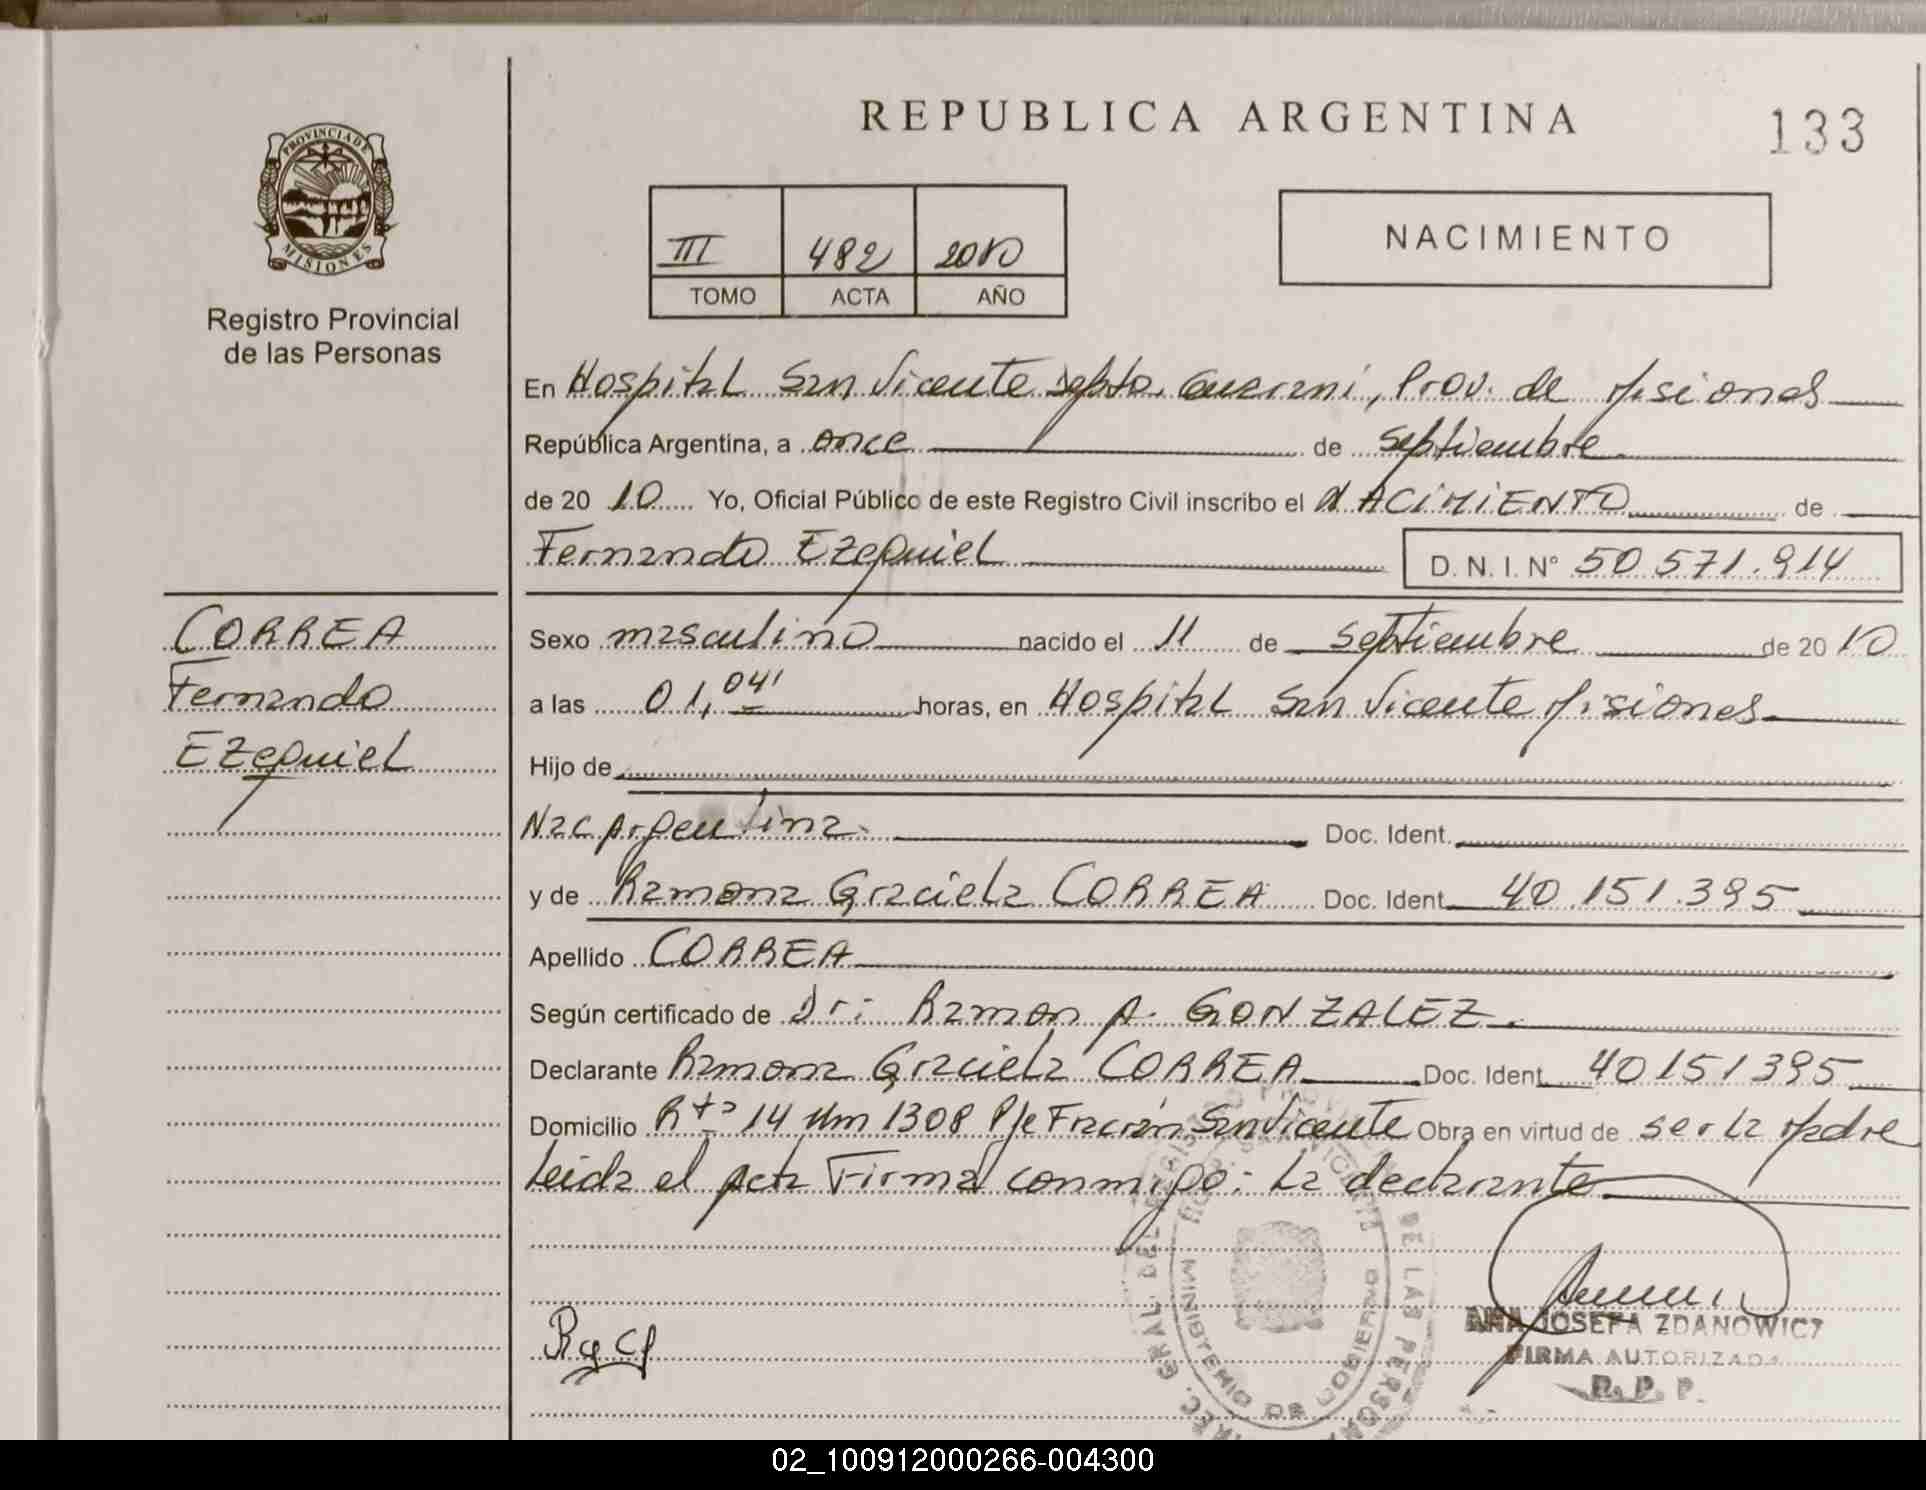 REPUBLICA ARGENTINA
133
PROVINCIA DE
MISIONES
Registro Provincial
de las Personas
III 482 2010
TOMO ACTA AÑO
NACIMIENTO
En Hospital San Vicente Depto. Guarani, Prov. de Misiones
República Argentina, a once de Septiembre
de 20 10 Yo, Oficial Público de este Registro Civil inscribo el NACIMIENTO de
Fernando Ezequiel D.N.I. N° 50.571.914
CORREA
Fernando
Ezequiel
Sexo masculino nacido el 11 de Septiembre de 20 10
a las 01,04' horas, en Hospital San Vicente Misiones
Hijo de
Nac Argentina. Doc. Ident.
y de Ramona Graciela CORREA Doc. Ident. 40.151.395
Apellido CORREA
Según certificado de Dr: Ramon A. GONZALEZ.
Declarante Ramona Graciela CORREA Doc. Ident. 40151395
Domicilio Rta 14 Km 1308 Pje Fracrán San Vicente Obra en virtud de ser la Madre
Leida el acta Firma conmigo: La declarante
RgCf
ANA JOSEFA ZDANOWICZ
FIRMA AUTORIZADA
R. P. P.
MINISTERIO DE GOBIERNO
DE LAS PERSONAS
02_100912000266-004300